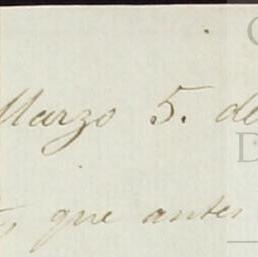 Marzo 5. de
que antes